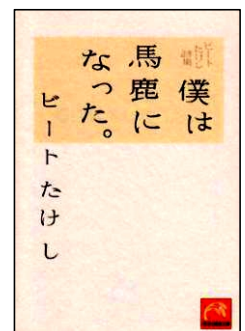 僕は
ビートたけし詩集
馬鹿に
なった。
ビートたけし